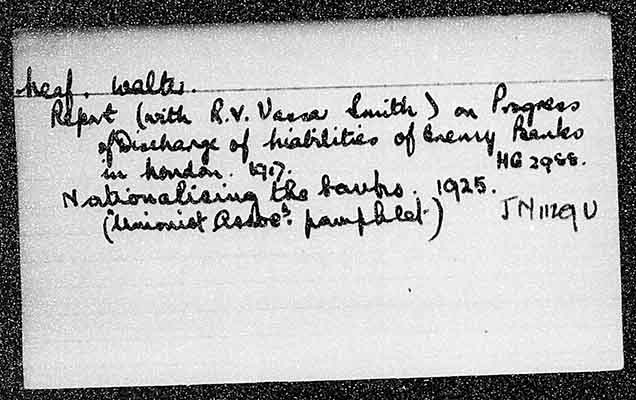 Leaf. Walter.
Report (with R.V. Vassar Smith) on Progress
of Discharge of Liabilities of Enemy Banks
in London. 1917. HG 2988.
Nationalising the banks. 1925.
(Unionist Assocn. pamphlet) JN1129U